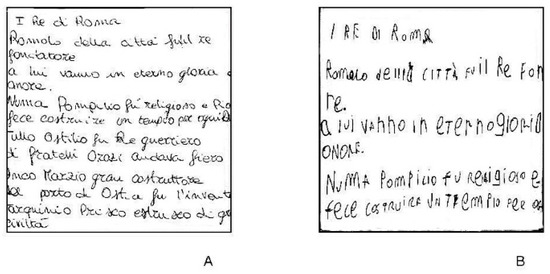 I Re di Roma
Romolo della città fu il re
fondatore
a lui vanno in eterno gloria e
onore.
Numa Pompilio fu religioso e
fece costruire un tempio per ogni
Tullo Ostilio fu Re guerriero
di fratelli Orazi andava fiero
Anco Marzio gran costruttore
del porto di Ostia fu l'invent
Tarquinio Prisco estrusco di g
civiltà
A
I RE DI ROMA
Romolo della CITTÀ fu il Re Fon
re.
a lui VANNO in eterno gloria
ONORE.
NUMA Pompilio fu religioso e
fece COSTRUIRE UN TEMPIO PER
B